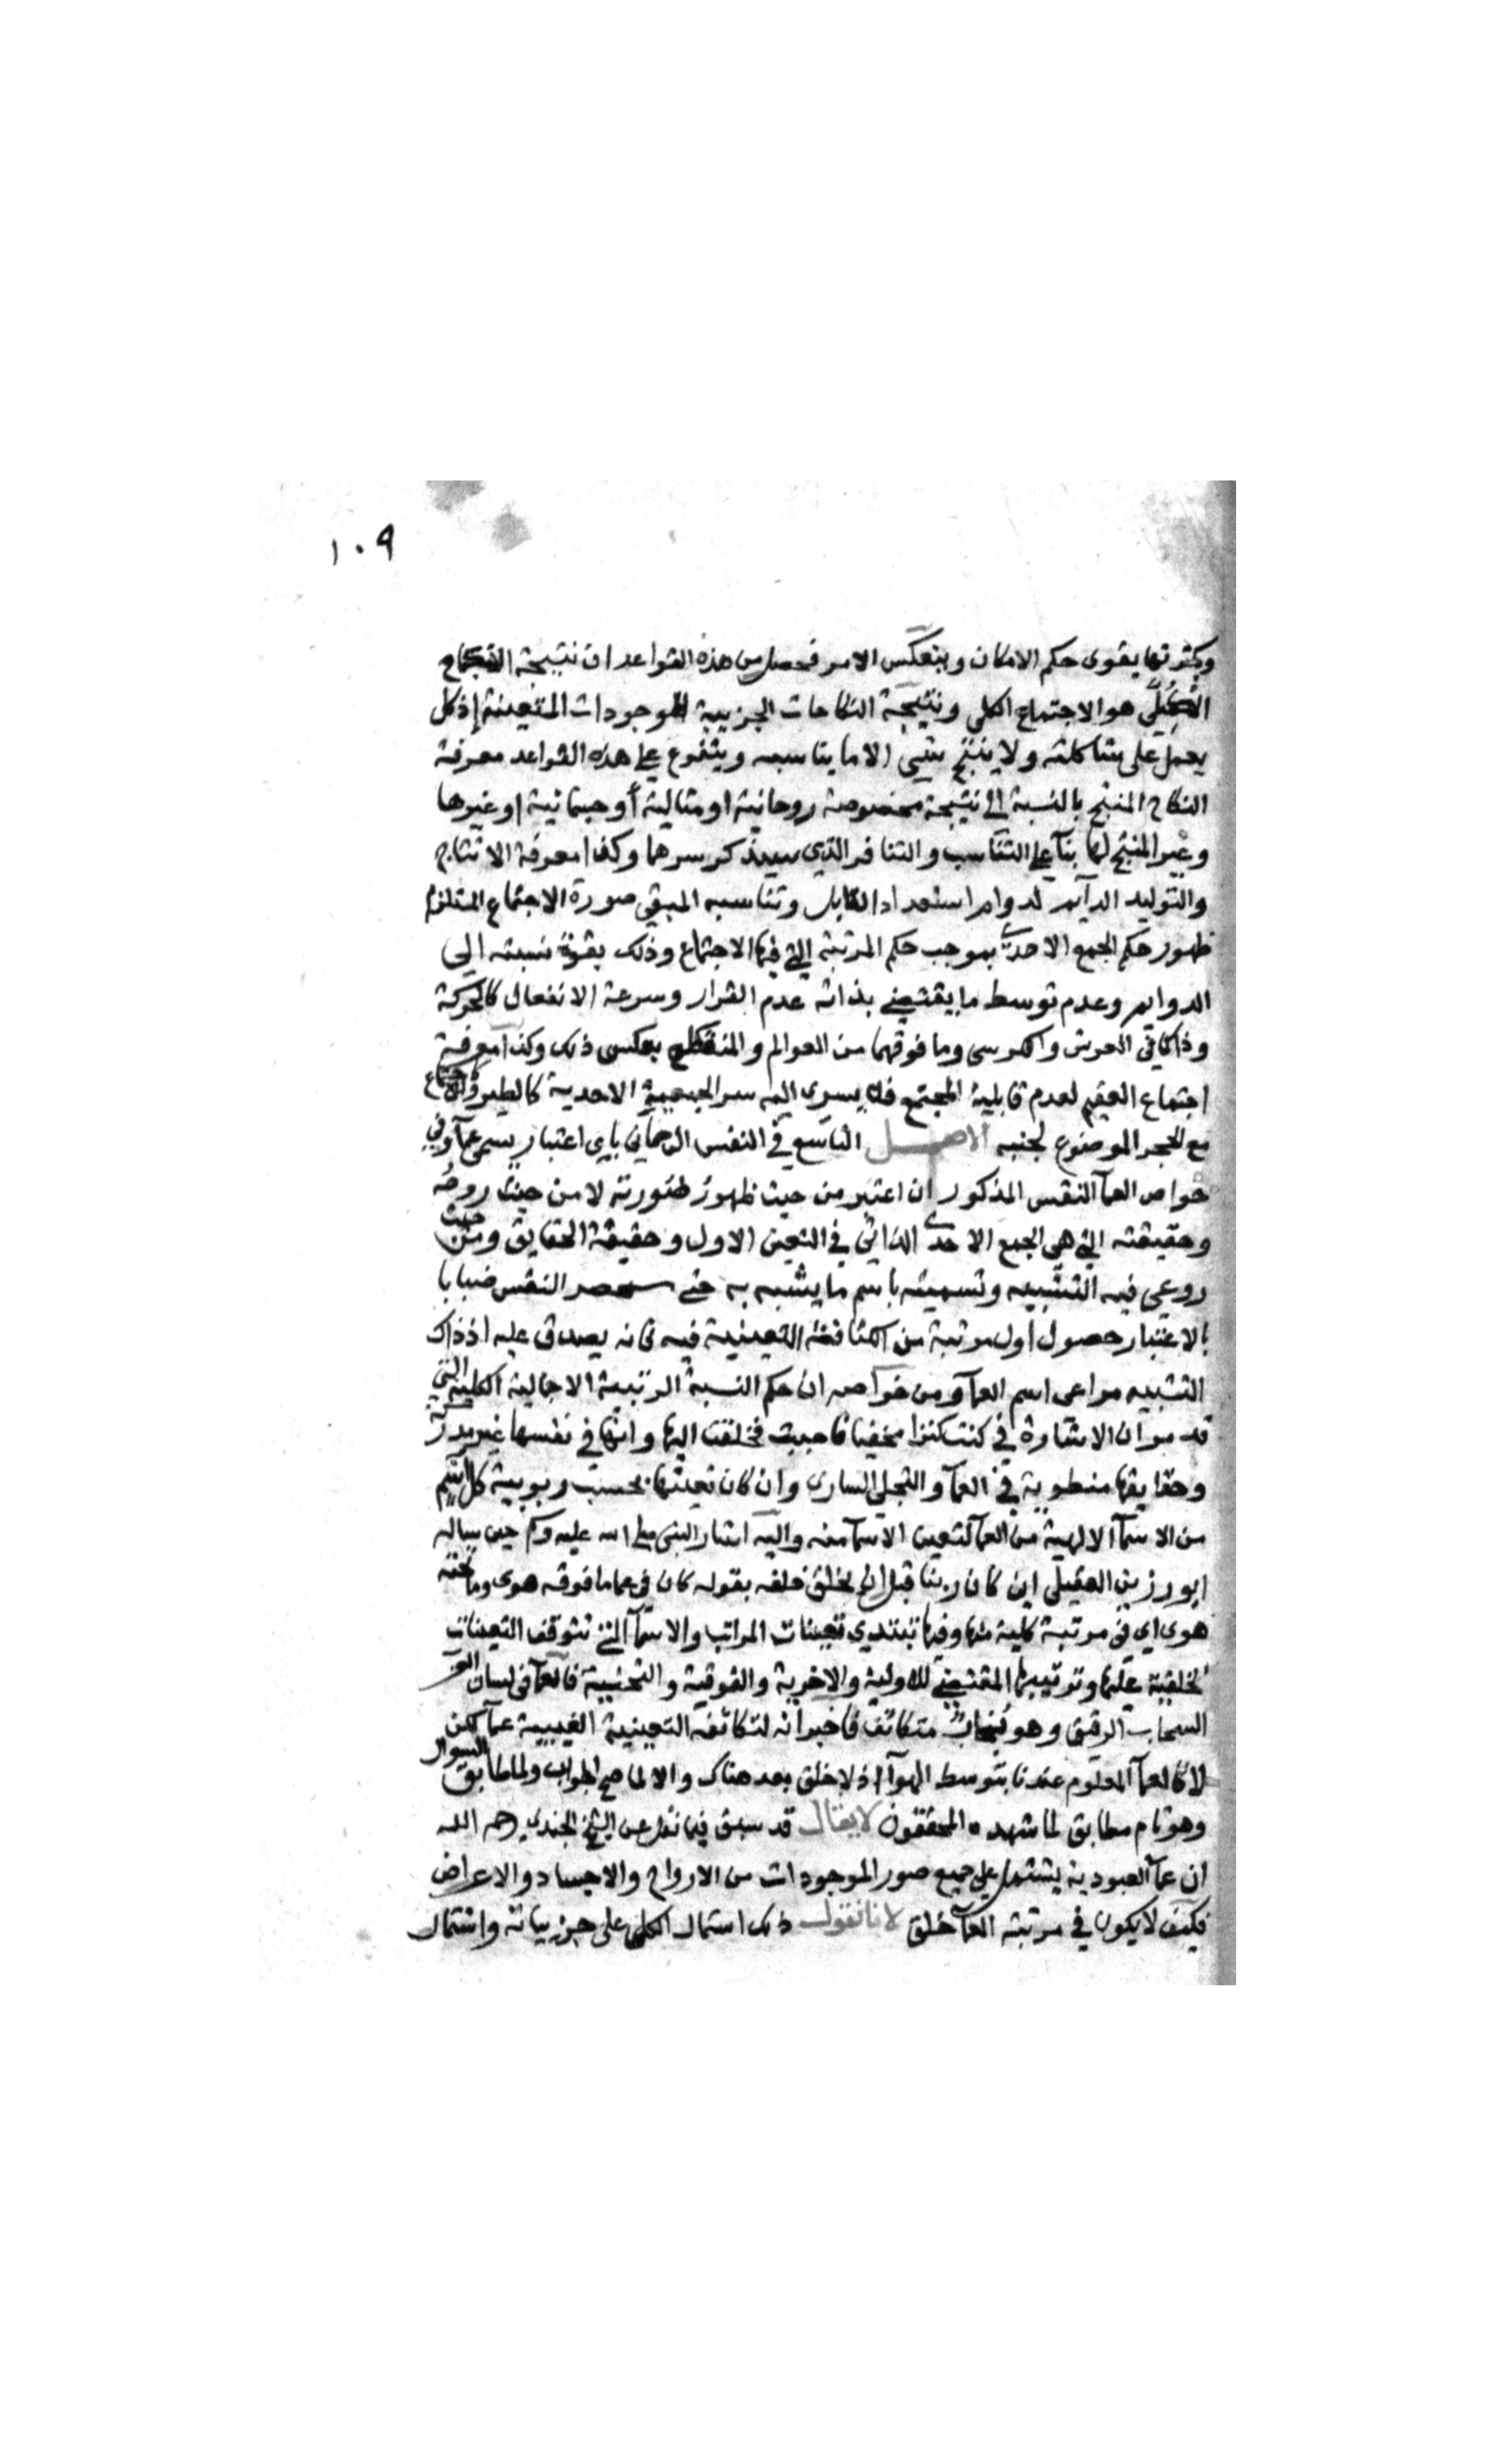 ١٠٩
وبكثرتها يقوى حكم الامكان وينعكس الامر فحصل من هذه القواعد ان نتيجة النكاح
الكلي هو الاجتماع الكلي ونتيجة النكاحات الجزيية الموجودات المتعينة إذ كل
يعمل على شاكلته ولا ينتج شي الا ما يناسبه ويتفرع على هذه القواعد معرفة
النكاح المنتج بالنسبة الى نتيجة مخصوصة روحانية او مثالية أو جسمانية او غيرها
وغير المنتج لها بنآ على التناسب والتنافر الذي سيذكر سرهما وكذا معرفة الانتاج
والتوليد الدآيم لدوام استعداد القابل وتناسبه المبقي صورة الاجتماع المستلزم
ظهور حكم الجمع الاحدي بموجب حكم المرتبة التي فيها الاجتماع وذلك بقوة نسبته الى
الدوام وعدم توسط ما يقتضي بذاته عدم القرار وسرعة الانفعال كالحركة
وذا كما في العرش والكرسي وما فوقهما من العوالم والمنقطع بعكس ذلك وكذا معرفة
اجتماع العقيم لعدم قابلية المجتمع فلا يسري اليه سر الجمعية الاحدية كالطير والاجتماع
مع الحجر الموضوع لجنبه الاصل التاسع في النفس الرحماني باي اعتبار يسمى عمآ وفي
خواص العمآ النفس المذكور ان اعتبر من حيث ظهور صورته لا من حيث روحه
وحقيقته التي هي الجمع الاحدي الذاتي في التعين الاول وحقيقة الحقايق ومن حيث
روعي فيه التشبيه وتسميته باسم ما يشبه به حتى النفس ضبابا
بالاعتبار حصول اول مرتبة من الكثافة التعينية فيه فانه يصدق عليه اذ ذاك
التشبيه مراعى اسم العمآ ومن خوآصه ان حكم النسبة الرتبية الاجمالية الكلية التي
قد مر ان الاشارة في كنت كنزا مخفيا فاحببت فخلقت اليها وانها في نفسها غير مدركة
وحقايقها منطوية في العمآ والتجلي الساري وان كان تعينها بحسب ربوبية كل اسم
من الاسمآ الالهية من العمآ لتعين الاسمآ منه واليه اشار النبي صلى الله عليه وسلم حين ساله
ابو رزين العقيلي اين كان ربنا قبل ان يخلق خلقه بقوله كان في عما ما فوقه هوى وما تحته
هوى اي في مرتبة كلية منها وفيها تبتدي تعينات المراتب والاسمآ التي تتوقف التعينات
الخلقية عليها وترتيبها المقتضي للاولية والاخرية والفوقية والتحتية فالعمآ في لسان العرب
السحاب الرقيق وهو بخار متكاثف فاخبر انه لتكاثفه التعينية الغيبية عمآ لكن
لا كالعمآ المعلوم عندنا بتوسط الهوآ اذ لا خلق بعد هناك والا لما صح الجواب ولما طابق السوال
وهو تام مطابق لما شهده المحققون لا يقال قد سبق فيما نقل عن الشيخ الجندي رحمه الله
ان عمآ العبودية يشتمل على جميع صور الموجودات من الارواح والاجساد والاعراض
فكيف لا يكون في مرتبة العمآ خلق لانا نقول ذلك اشتمال الكلي على جزيياته واشتمال